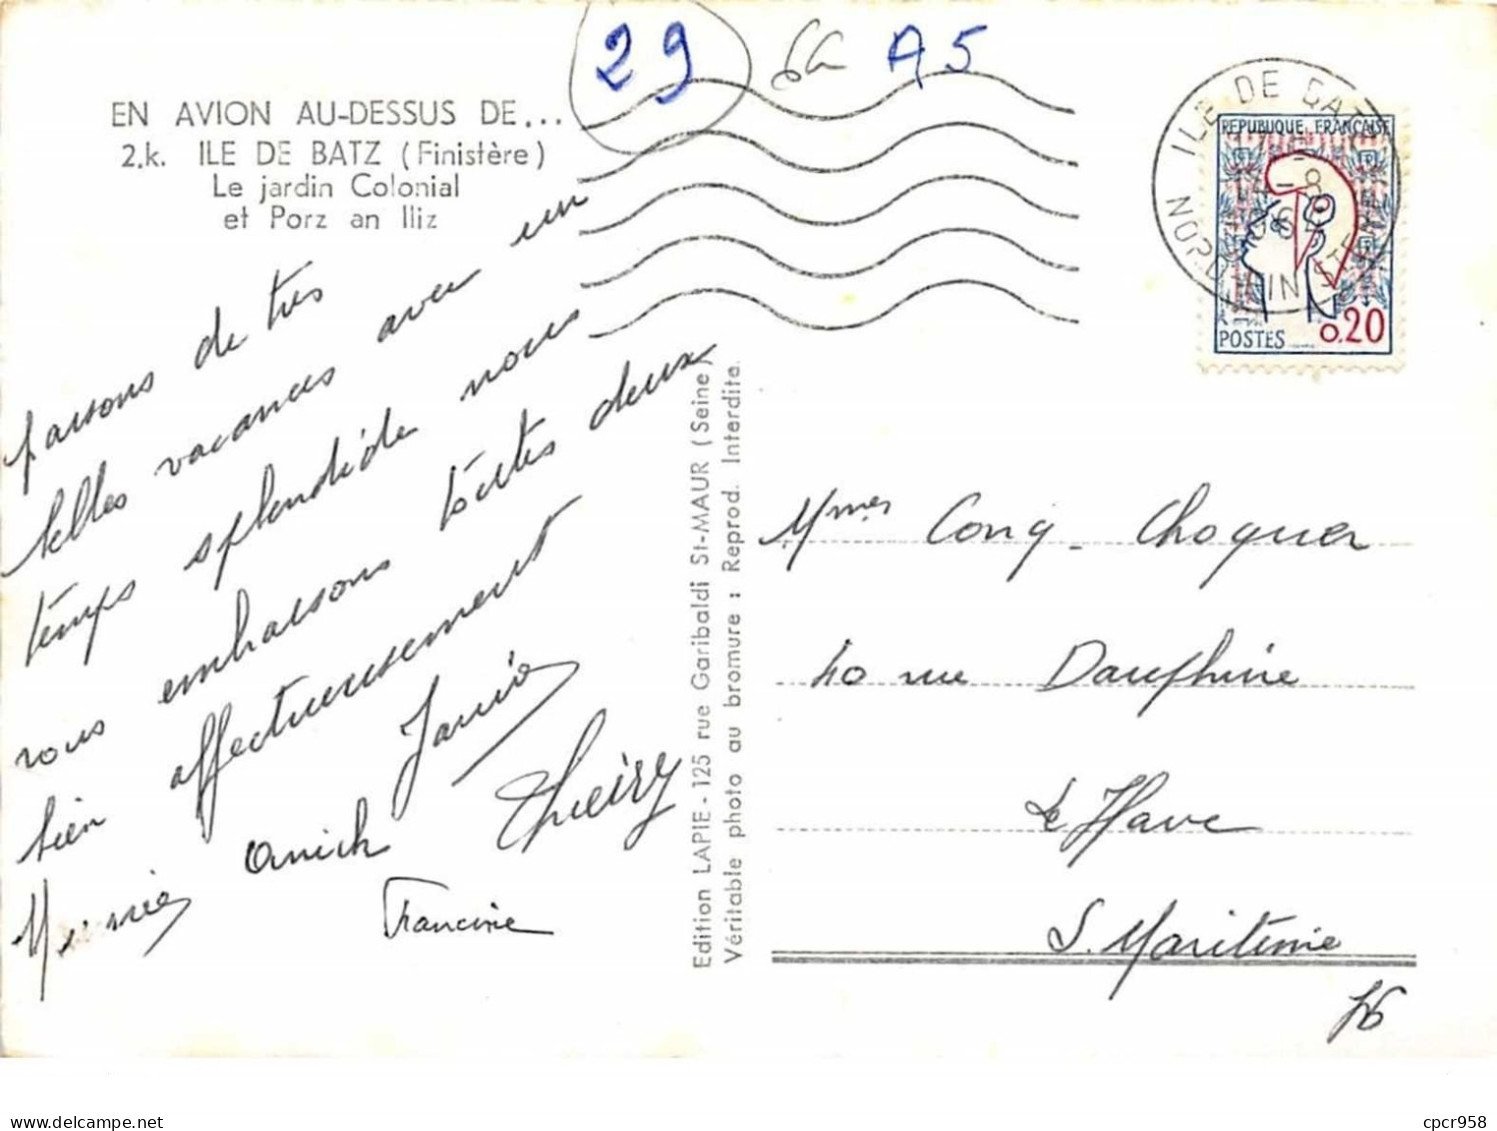 29 A5
EN AVION AU-DESSUS DE...
2.k. ILE DE BATZ (Finistère)
Le jardin Colonial
et Porz an Iliz
passons de très
belles vacances avec un
temps splendide nous
vous embrassons toutes deux
bien affectueusement
Janie
Mémée Anick Thierry
Francine
Edition LAPIE - 125 rue Garibaldi St-MAUR (Seine)
Véritable photo au bromure : Reprod. Interdite.
ILE DE BATZ
NORD FINISTERE
REPUBLIQUE FRANÇAISE
POSTES 0.20
Mmes Conq - Choquer
40 rue Dauphine
Le Havre
S. Maritime
76
cpcr958